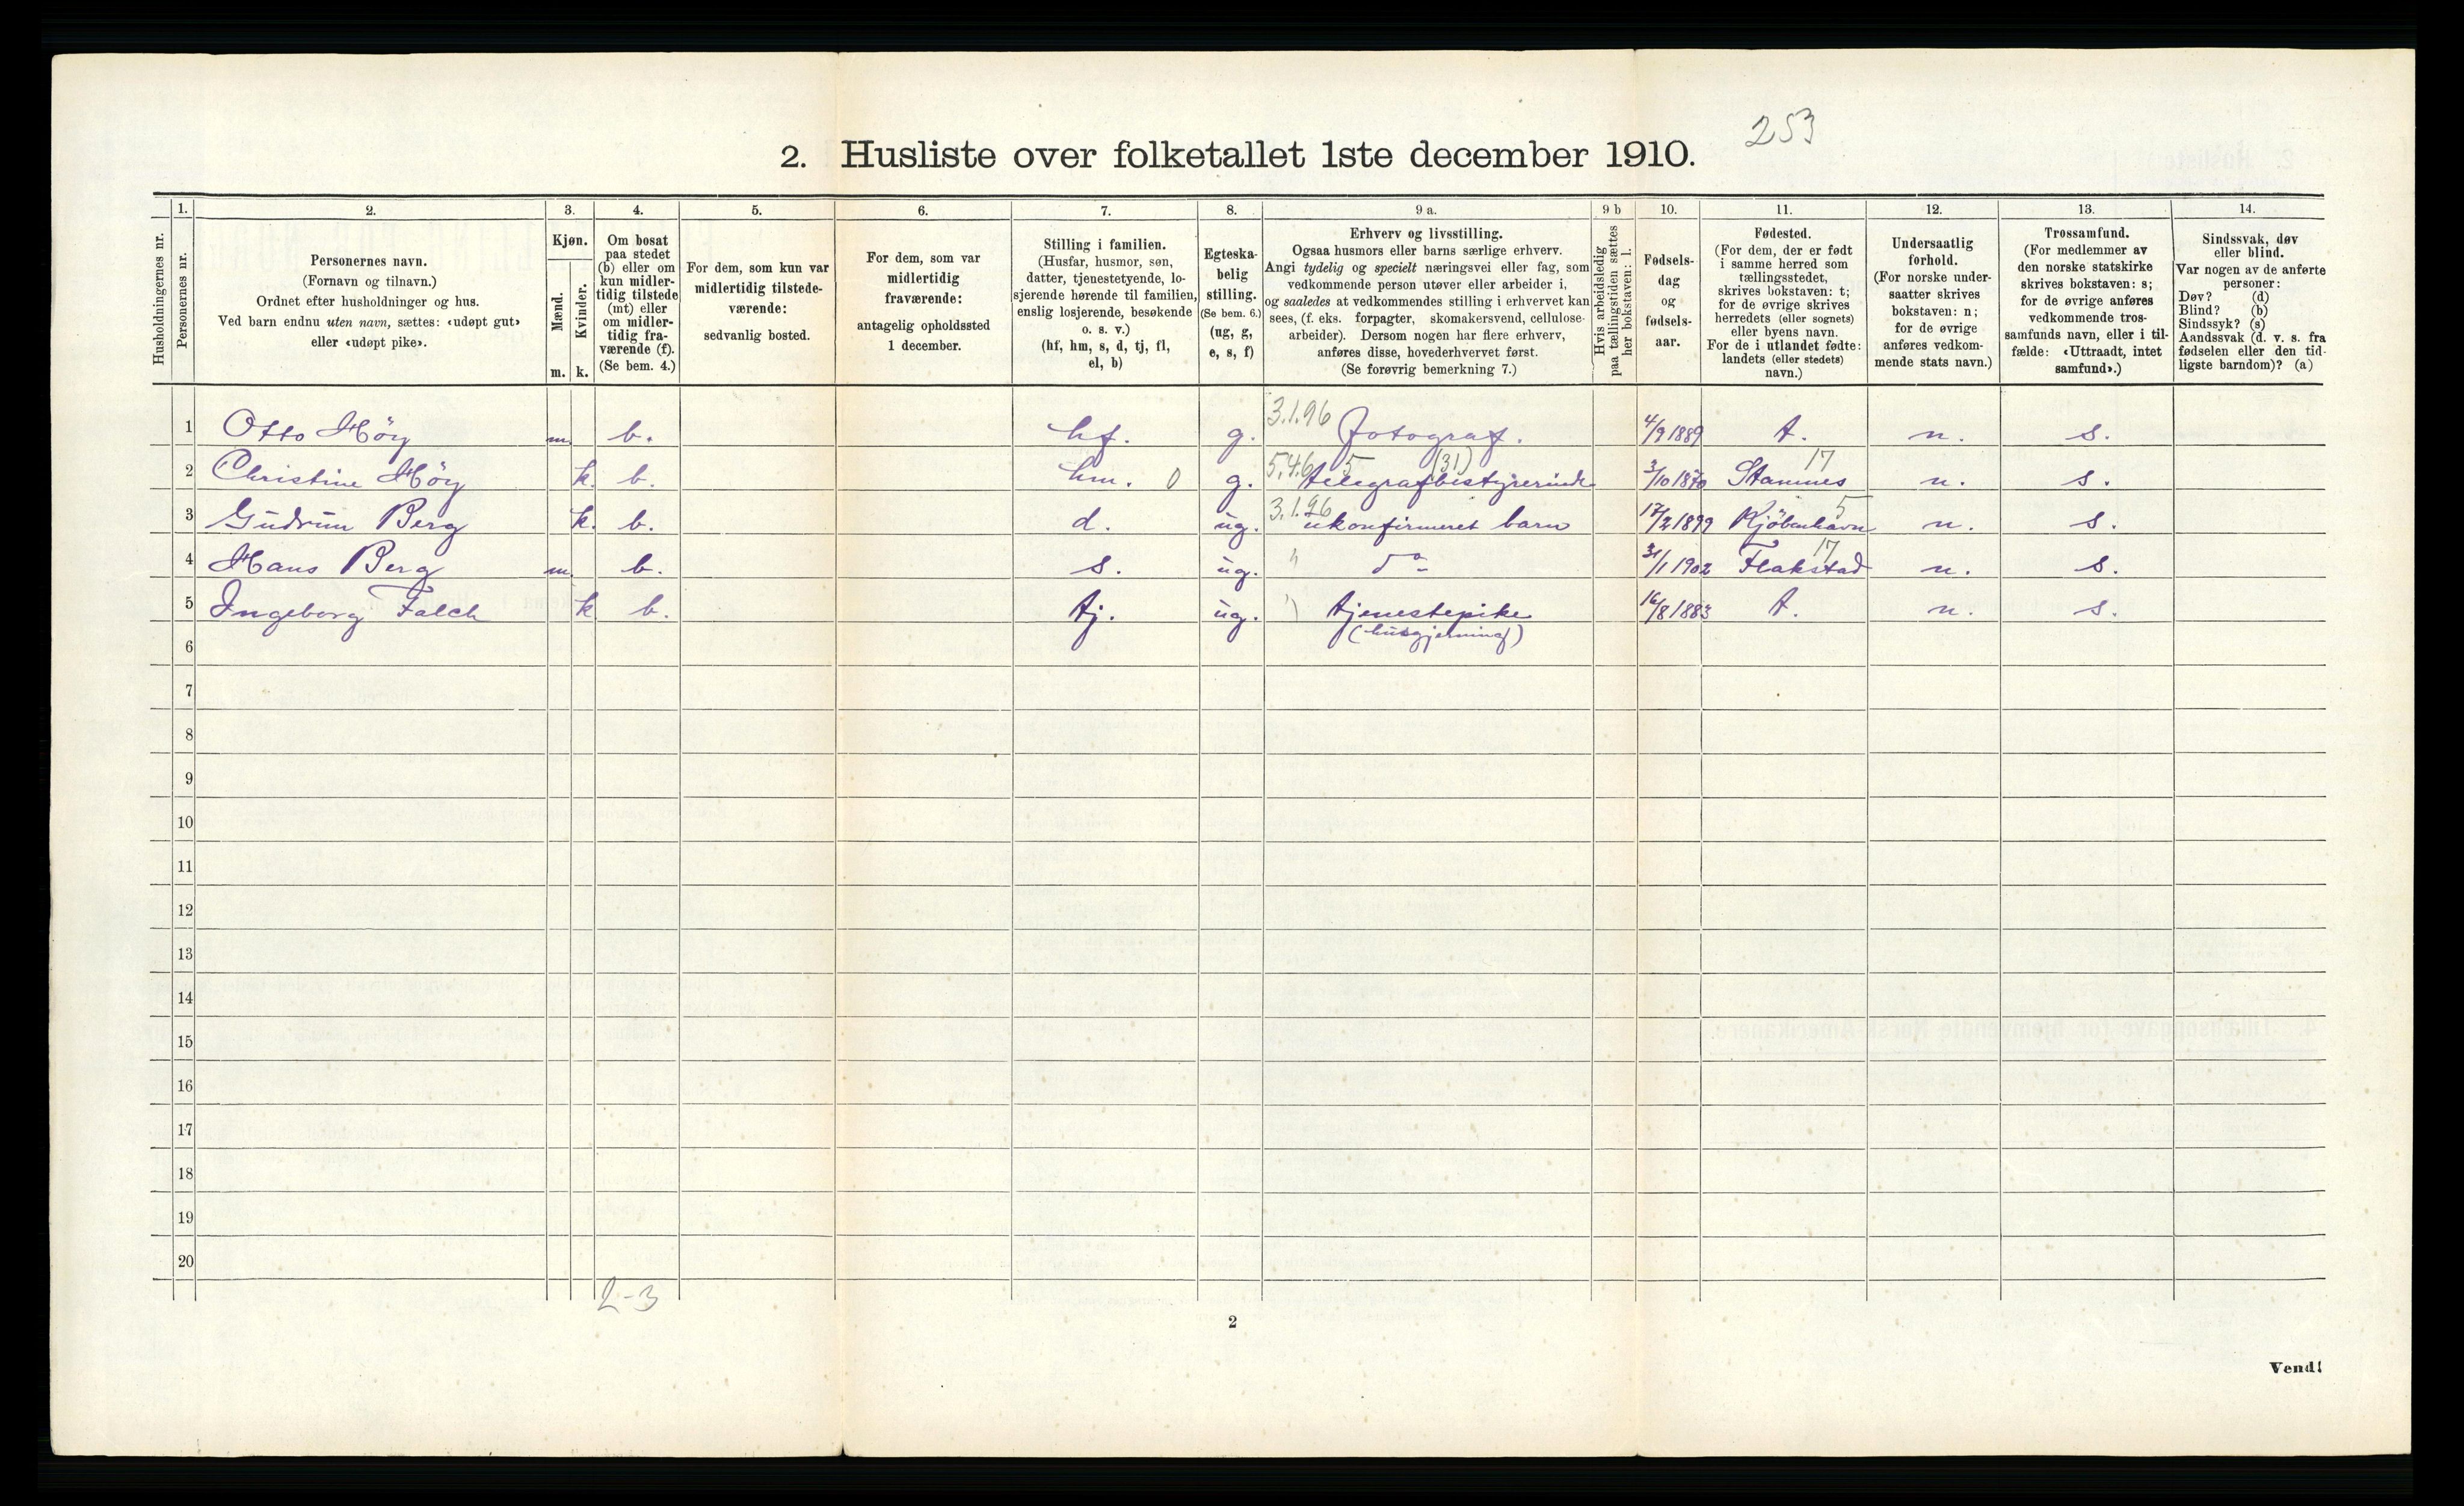 253
2. Husliste over folketallet 1ste december 1910.
Husholdningernes nr.
1.
Personernes nr.
2.
Personernes navn.
(Fornavn og tilnavn.)
Ordnet efter husholdninger og hus.
Ved barn endnu uten navn, sættes: «udøpt gut»
eller «udøpt pike».
3.
Kjøn.
Mænd.
Kvinder.
m. k.
4.
Om bosat
paa stedet
(b) eller om
kun midler-
tidig tilstede
(mt) eller
om midler-
tidig fra-
værende (f).
(Se bem. 4.)
5.
For dem, som kun var
midlertidig tilstede-
værende:
sedvanlig bosted.
6.
For dem, som var
midlertidig
fraværende:
antagelig opholdssted
1 december.
7.
Stilling i familien.
(Husfar, husmor, søn,
datter, tjenestetyende, lo-
sjerende hørende til familien,
enslig losjerende, besøkende
o. s. v.)
(hf, hm, s, d, tj, fl,
el, b)
8.
Egteska-
belig
stilling.
(Se bem. 6.)
(ug, g,
e, s, f)
9 a.
Erhverv og livsstilling.
Ogsaa husmors eller barns særlige erhverv.
Angi tydelig og specielt næringsvei eller fag, som
vedkommende person utøver eller arbeider i,
og saaledes at vedkommendes stilling i erhvervet kan
sees, (f. eks. forpagter, skomakersvend, cellulose-
arbeider). Dersom nogen har flere erhverv,
anføres disse, hovederhvervet først.
(Se forøvrig bemerkning 7.)
9 b
Hvis arbeidsledig
paa tællingstiden sættes
her bokstaven: l.
10.
Fødsels-
dag
og
fødsels-
aar.
11.
Fødested.
(For dem, der er født
i samme herred som
tællingsstedet,
skrives bokstaven: t;
for de øvrige skrives
herredets (eller sognets)
eller byens navn.
For de i utlandet fødte:
landets (eller stedets)
navn.)
12.
Undersaatlig
forhold.
(For norske under-
saatter skrives
bokstaven: n;
for de øvrige
anføres vedkom-
mende stats navn.)
13.
Trossamfund.
(For medlemmer av
den norske statskirke
skrives bokstaven: s;
for de øvrige anføres
vedkommende tros-
samfunds navn, eller i til-
fælde: «Uttraadt, intet
samfund».)
14.
Sindssvak, døv
eller blind.
Var nogen av de anførte
personer:
Døv? (d)
Blind? (b)
Sindssyk? (s)
Aandssvak (d. v. s. fra
fødselen eller den tid-
ligste barndom)? (a)
1 Otto Höy m. b. hf. g. 3.1.96 fotograf. 4/9 1889 t. n. s.
2 Christine Höy k. b. hm. 0 g. 5.4.6 5 (31) telegrafbestyrerinde 3/10 1870 Stamnes 17 n. s.
3 Gudrun Berg k. b. d. ug. 3.1.96 ukonfirmeret barn 17/2 1899 Kjöbenhavn 5 n. s.
4 Hans Berg m. b. s. ug. " do 31/1 1902 Flakstad 17 n. s.
5 Ingeborg Falch k b. tj. ug. " tjenestepike 16/8 1883 t. n. s.
(husgjerning)
6
7
8
9
10
11
12
13
14
15
16
17
18
19
20
2-3
2
Vend!